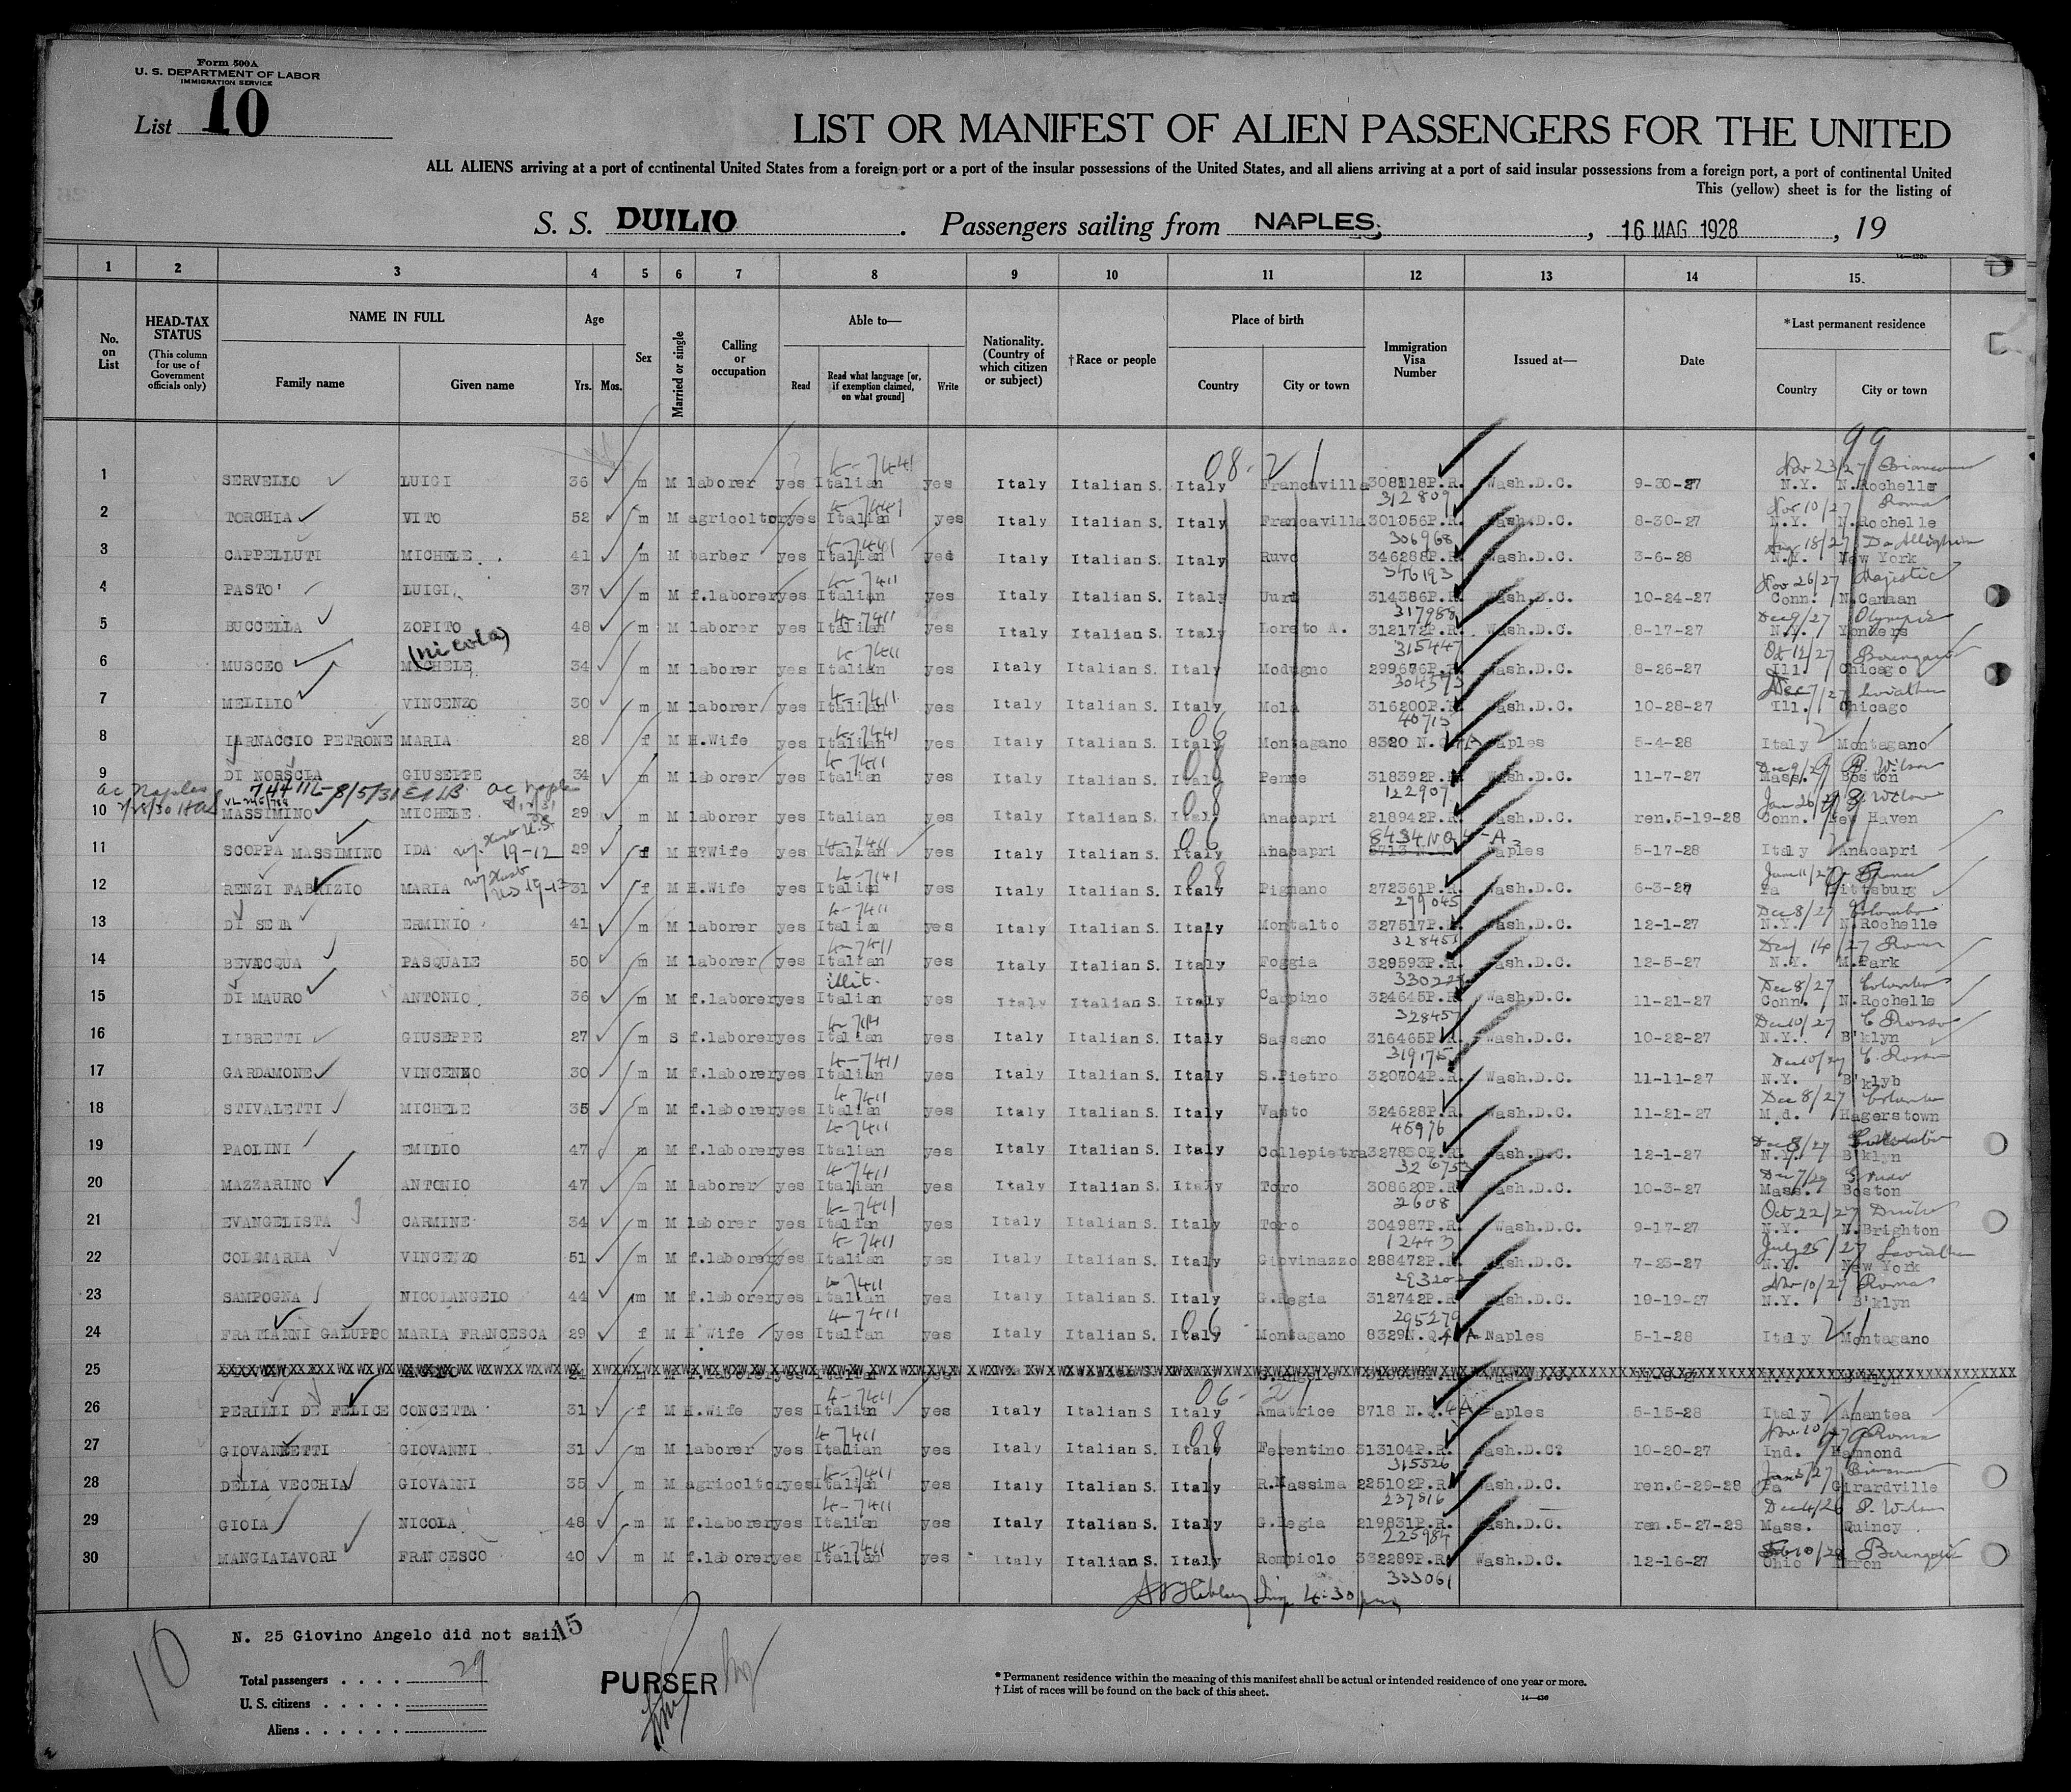 Form 500A
U. S. DEPARTMENT OF LABOR
IMMIGRATION SERVICE
List 10
LIST OR MANIFEST OF ALIEN PASSENGERS FOR THE UNITED
ALL ALIENS arriving at a port of continental United States from a foreign port or a port of the insular possessions of the United States, and all aliens arriving at a port of said insular possessions from a foreign port, a port of continental United
This (yellow) sheet is for the listing of
S. S. DUILIO. Passengers sailing from NAPLES, 16 MAG 1928, 19
1 2 3 4 5 6 7 8 9 10 11 12 13 14 15.
No. on List
HEAD-TAX STATUS
(This column for use of Government officials only)
NAME IN FULL
Family name Given name
Age
Yrs. Mos.
Sex
Married or single
Calling or occupation
Able to—
Read Read what language [or, if exemption claimed, on what ground] Write
Nationality. (Country of which citizen or subject)
†Race or people
Place of birth
Country City or town
Immigration Visa Number
Issued at—
Date
*Last permanent residence
Country City or town
99
4-7441 08- 21 Nov 23/27
1 SERVELLO LUIGI 36 m M laborer yes Italian yes Italy Italian S. Italy Francavilla P.R. Wash.D.C. 9-30-27 N.Y. N.Rochelle
312809 Nov 10/27 Roma
2 TORCHIA VITO 52 m M agricoltor yes Italian yes Italy Italian S. Italy Francavilla 301056P.R. Wash.D.C. 8-30-27 N.Y. N.Rochelle
306968
3 CAPPELLUTI MICHELE 41 m M barber yes Italian yes Italy Italian S. Italy Ruvo 346288P.R. Wash.D.C. 3-6-28 N.Y. New York
4-7411 346193 Nov 26/27 Majestic
4 PASTO' LUIGI 37 m M f.laborer yes Italian yes Italy Italian S. Italy 314386P.R. Wash.D.C. 10-24-27 Conn. N.Canaan
4-7411 317988 Dec 9/27 Olympic
5 BUCCELLA ZOPITO 48 m M laborer yes Italian yes Italy Italian S. Italy Loreto A. 312172P.R. Wash.D.C. 8-17-27 N.Y. Yonkers
(nicola) 4-7411 315447 Oct 12/27
6 MUSCEO MICHELE 34 m M laborer yes Italian yes Italy Italian S. Italy Modugno 299676P.R. Wash.D.C. 8-26-27 Ill. Chicago
4-7411 304373 Dec 7/27
7 MELILLO VINCENZO 30 m M laborer yes Italian yes Italy Italian S. Italy Mola 316200P.R. Wash.D.C. 10-28-27 Ill. Chicago
4-7441 06 40715
8 IARNACCIO PETRONE MARIA 28 f M H.Wife yes Italian yes Italy Italian S. Italy Montagano 8320 N.Q. Naples 5-4-28 Italy Montagano
4-7411 08 Dec 9/27 P. Wilson
9 DI NORSCIA GIUSEPPE 34 m M laborer yes Italian yes Italy Italian S. Italy Penne 318392P.R. Wash.D.C. 11-7-27 Mass. Boston
ac Naples 8/5/31 122907
10 MASSIMINO MICHELE 29 m M laborer yes Italian yes Italy Italian S. Italy Anacapri 218942P.R. Wash.D.C. ren.5-19-28 Conn. New Haven
19-12 4-7411 06 8434 NQ 4-A
11 SCOPPA MASSIMINO IDA 29 f M H?Wife yes Italian yes Italy Italian S. Italy Anacapri Naples 5-17-28 Italy Anacapri
08
12 RENZI FABRIZIO MARIA 31 f M H.Wife yes Italian yes Italy Italian S. Italy Pignano 272361P.R. Wash.D.C. 6-3-27 Pa Pittsburg
4-7411 279045 Dec 8/27 Colombo
13 DI SETA ERMINIO 41 m M laborer yes Italian yes Italy Italian S. Italy Montalto 327517P.R. Wash.D.C. 12-1-27 N.Y. N.Rochelle
4-7411 328451
14 BEVACQUA PASQUALE 50 m M laborer yes Italian yes Italy Italian S. Italy Foggia 329593P.R. Wash.D.C. 12-5-27 N.Y. M.Park
illit. Dec 8/27 Colombo
15 DI MAURO ANTONIO 36 m M f.laborer yes Italian yes Italy Italian S. Italy Carpino 324645P.R. Wash.D.C. 11-21-27 Conn. N.Rochelle
Dec 10/27 C. Rosso
16 LIBRETTI GIUSEPPE 27 m S f.laborer yes Italian yes Italy Italian S. Italy Sassano 316465P.R. Wash.D.C. 10-22-27 N.Y. B'klyn
4-7411 319175 Dec 10/27 C. Rosso
17 GARDAMONE VINCENZO 30 m M f.laborer yes Italian yes Italy Italian S. Italy S.Pietro 320704P.R. Wash.D.C. 11-11-27 N.Y. B'klyb
4-7411 Dec 8/27 Colombo
18 STIVALETTI MICHELE 35 m M f.laborer yes Italian yes Italy Italian S. Italy Vasto 324628P.R. Wash.D.C. 11-21-27 M.d. Hagerstown
4-7411 45976
19 PAOLINI EMIDIO 47 m M f.laborer yes Italian yes Italy Italian S. Italy Collepietra 327830P.R. Wash.D.C. 12-1-27 N.Y. B'klyn
4-7411 326753
20 MAZZARINO ANTONIO 47 m M laborer yes Italian yes Italy Italian S. Italy Toro 308620P.R. Wash.D.C. 10-3-27 Mass. Boston
4-7411 2608 Oct 22/27 Duilio
21 EVANGELISTA CARMINE 34 m M laborer yes Italian yes Italy Italian S. Italy Toro 304987P.R. Wash.D.C. 9-17-27 N.Y. N.Brighton
4-7411 12443 July 25/27
22 COLAMARIA VINCENZO 51 m M f.laborer yes Italian yes Italy Italian S. Italy Giovinazzo 288472P.R. Wash.D.C. 7-23-27 N.Y. New York
4-7411 Nov 10/27 Roma
23 SAMPOGNA NICOLANGELO 44 m M f.laborer yes Italian yes Italy Italian S. Italy G.Regia 312742P.R. Wash.D.C. 10-19-27 N.Y. B'klyn
4-7411 06 295279
24 FRATIANNI GALUPPO MARIA FRANCESCA 29 f M H Wife yes Italian yes Italy Italian S. Italy Montagano 8329 N.Q. Naples 5-1-28 Italy Montagano
25
4-7411 06- 21
26 PERILLI DE FELICE CONCETTA 31 f M H.Wife yes Italian yes Italy Italian S Italy Amatrice 8718 N.Q. Naples 5-15-28 Italy Amantea
4-7411 08 Roma
27 GIOVANNETTI GIOVANNI 31 m M laborer yes Italian yes Italy Italian S. Italy Ferentino 313104P.R. Wash.D.C? 10-20-27 Ind. Hammond
4-7411 315526
28 DELLA VECCHIA GIOVANNI 35 m M agricoltor yes Italian yes Italy Italian S. Italy R.Massima 225102P.R. Wash.D.C. ren.6-29-28 Pa Girardville
4-7411 237816 Dec 4/26 P. Wilson
29 GIOIA NICOLA 48 m M f.laborer yes Italian yes Italy Italian S. Italy G.Regia 219831P.R. Wash.D.C. ren.5-27-28 Mass. Quincy
4-7411 225984
30 MANGIALAVORI FRANCESCO 40 m M f.laborer yes Italian yes Italy Italian S. Italy Rompiolo 332289P.R. Wash.D.C. 12-16-27 Ohio Akron
333061
Insp 4-30 pm
N. 25 Giovino Angelo did not sail 15
10
Total passengers . . . . 29
U. S. citizens . . . .
Aliens . . . . . .
PURSER
* Permanent residence within the meaning of this manifest shall be actual or intended residence of one year or more.
† List of races will be found on the back of this sheet.
14—430